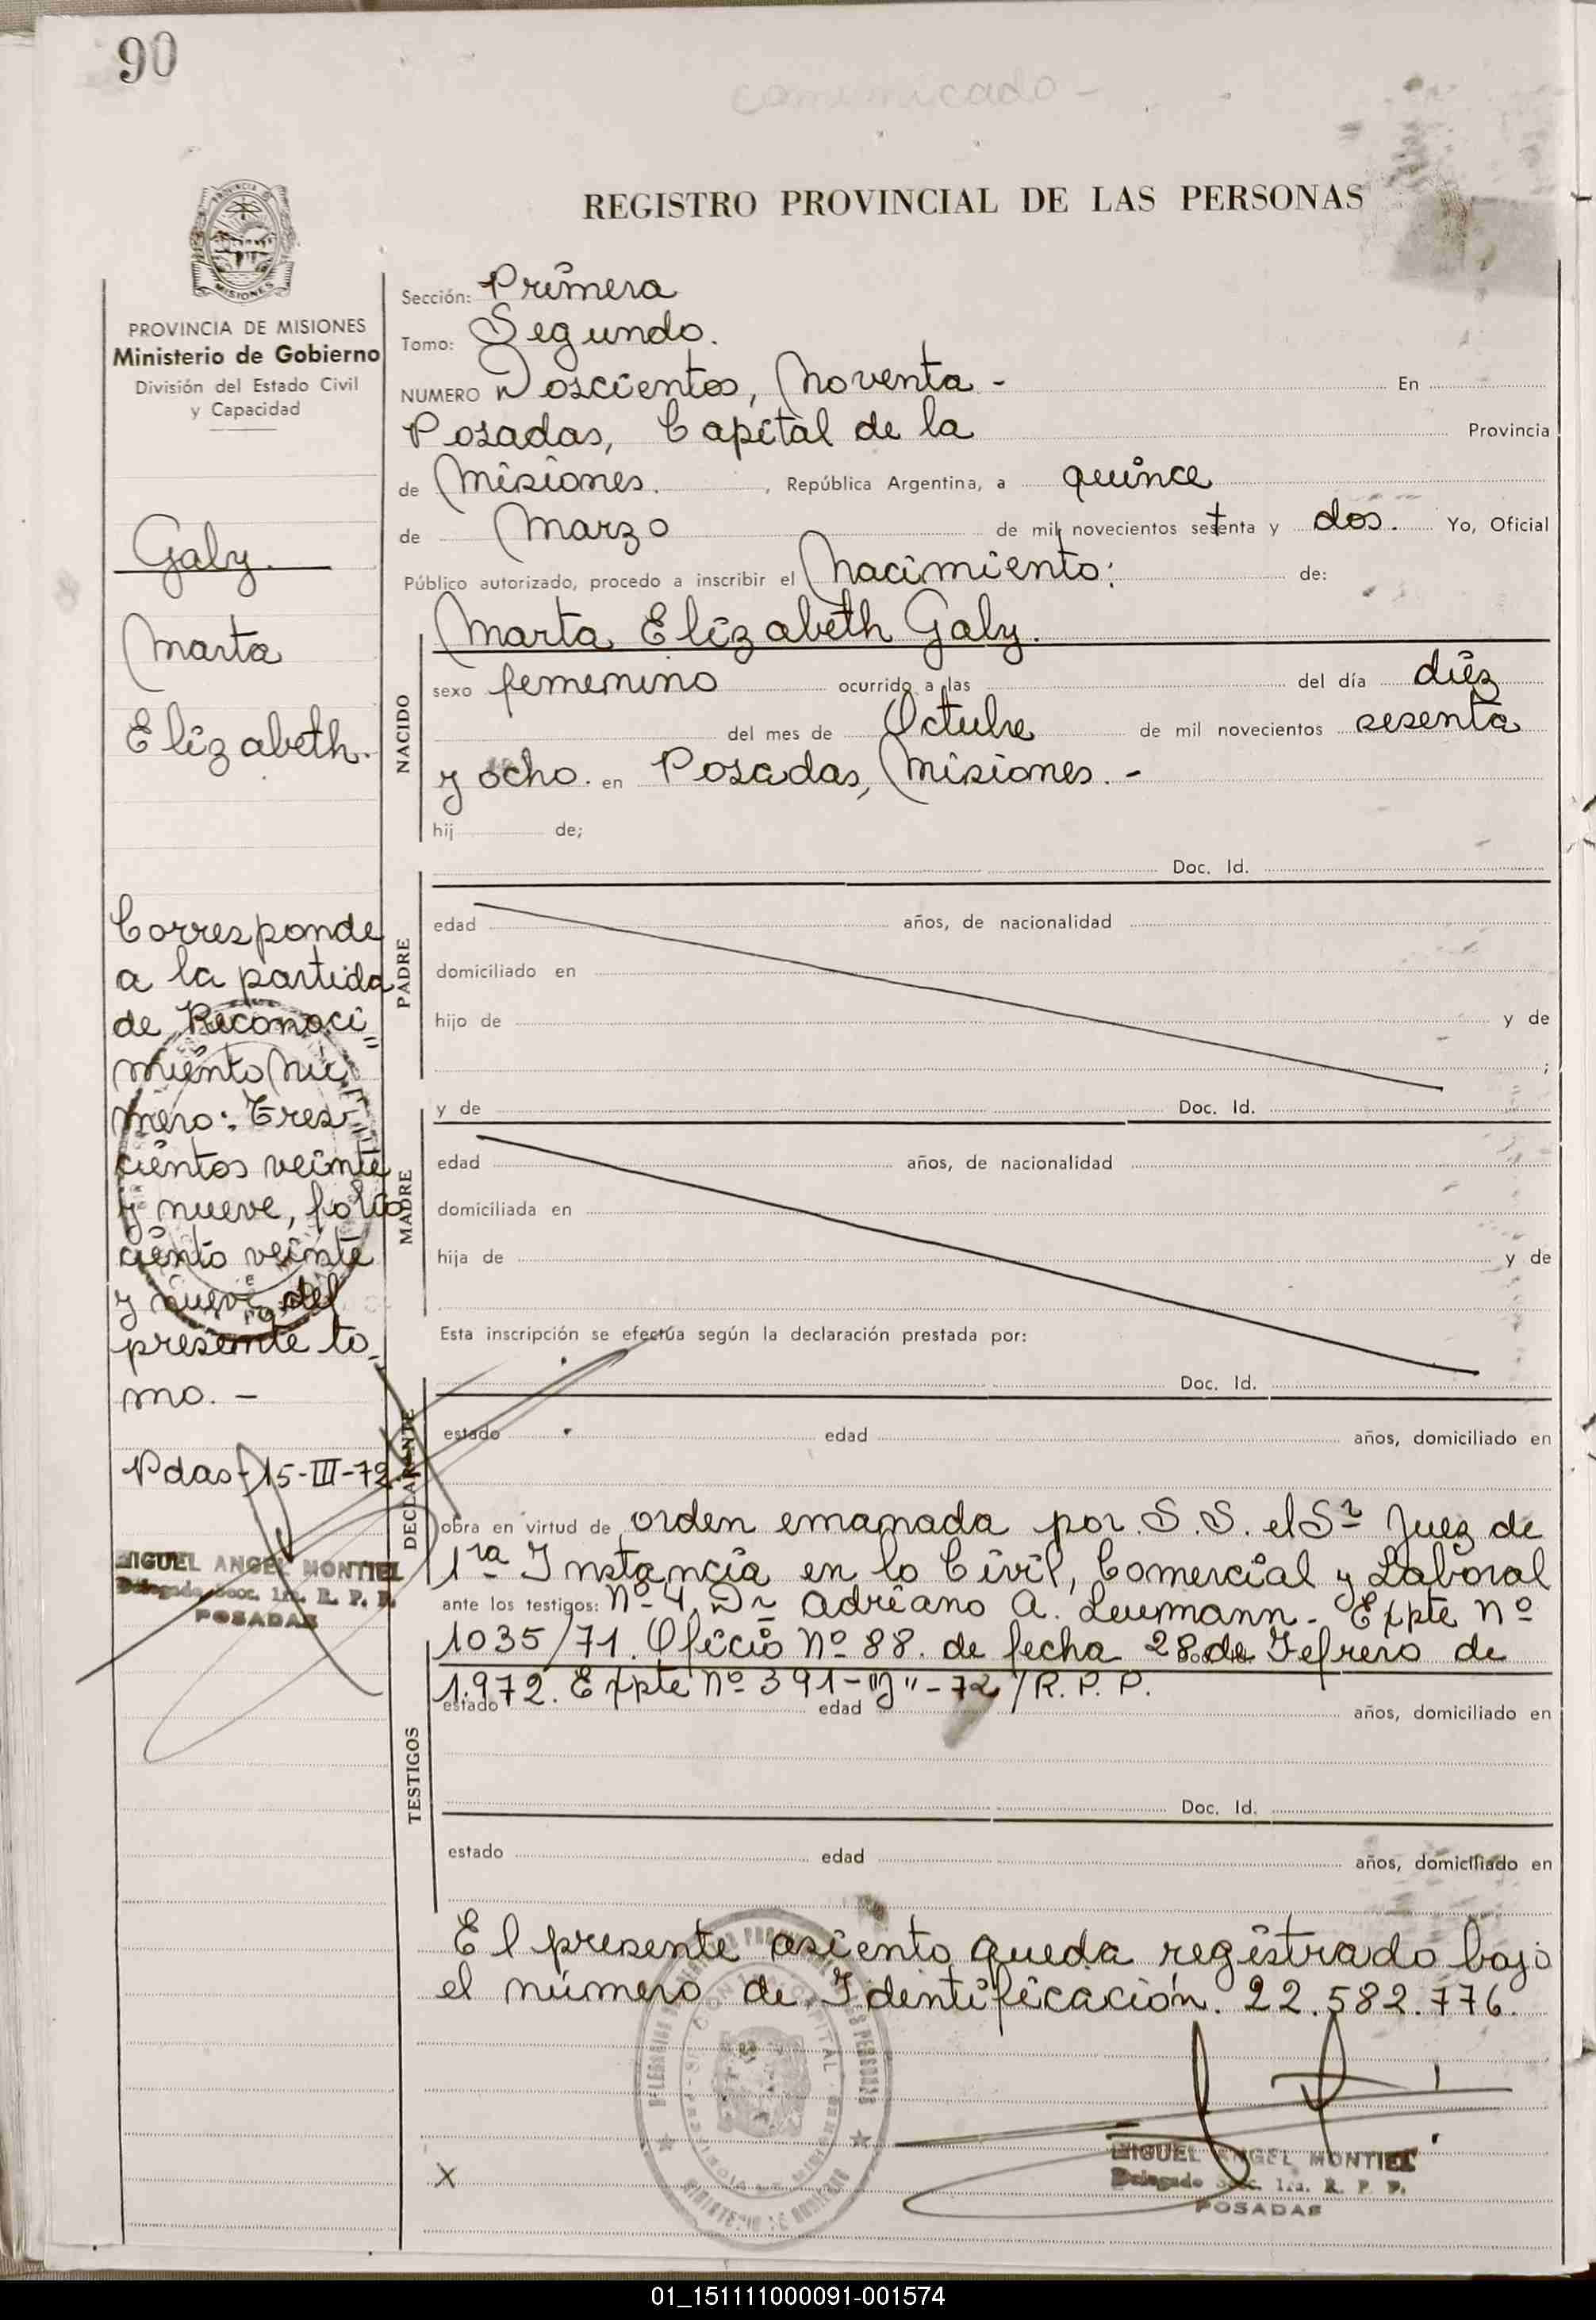 90
comunicado -
PROVINCIA DE
MISIONES
REGISTRO PROVINCIAL DE LAS PERSONAS
PROVINCIA DE MISIONES
Ministerio de Gobierno
División del Estado Civil
y Capacidad
Galy.
Marta
Elizabeth.
Corresponde
a la partida
de Reconoci"
miento Nú"
mero: Tres"
cientos veinte
y nueve, folio
ciento veinte
y nueve del
presente to_
mo. -
Pdas-15-III-72
MIGUEL ANGEL MONTIEL
Delegado Secc. 1ra. R. P. P.
POSADAS
Sección: Primera
Tomo: Segundo.
NUMERO Doscientos, Noventa - En
Posadas, Capital de la Provincia
de Misiones. , República Argentina, a quince
de Marzo de mil novecientos setenta y dos. Yo, Oficial
Público autorizado, procedo a inscribir el Nacimiento: de:
Marta Elizabeth Galy.
NACIDO
sexo femenino ocurrido a las del día diez
del mes de Octubre de mil novecientos sesenta
y ocho. en Posadas, Misiones. -
hij de;
Doc. Id.
PADRE
edad años, de nacionalidad
domiciliado en
hijo de y de
;
y de Doc. Id.
MADRE
edad años, de nacionalidad
domiciliada en
hija de y de
Esta inscripción se efectúa según la declaración prestada por:
Doc. Id.
DECLARANTE
estado edad años, domiciliado en
obra en virtud de orden emanada por S. S. el Sr Juez de
1ra Instancia en lo Civil, Comercial y Laboral
ante los testigos: Nº 4. Dr Adriano A. Leumann - Expte Nº
1035/71. Oficio Nº 88. de fecha 28 de Febrero de
1.972. Expte Nº 391-"J"-72/R. P. P.
estado edad años, domiciliado en
TESTIGOS
Doc. Id.
estado edad años, domiciliado en
El presente asiento queda registrado bajo
el número de Identificación. 22.582.776.
MIGUEL ANGEL MONTIEL
Delegado Secc. 1ra. R. P. P.
POSADAS
X
01_151111000091-001574